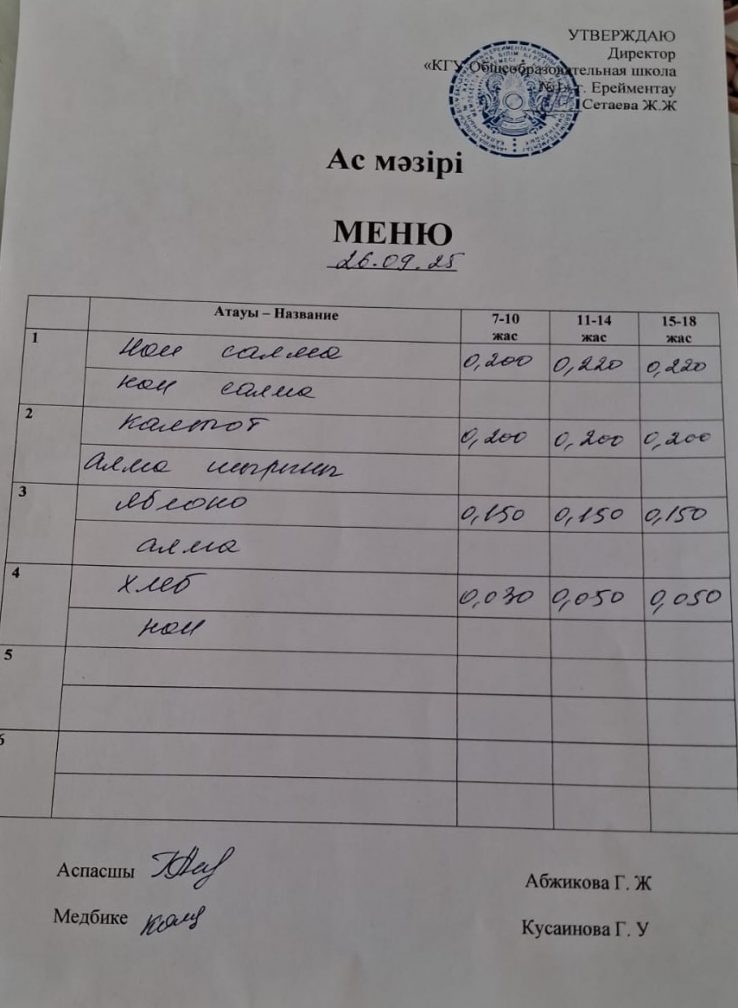 УТВЕРЖДАЮ
Директор
«КГУ Общеобразовательная школа
№1» г. Ерейментау
Сетаева Ж.Ж
Ас мәзірі
МЕНЮ
26.09.25
Атауы – Название 7-10 жас 11-14 жас 15-18 жас
1 Нан салма 0,200 0,220 0,220
нан салма
2 Компот 0,200 0,200 0,200
алма шырыны
3 Яблоко 0,150 0,150 0,150
алма
4 хлеб 0,030 0,050 0,050
нан
5
6
Аспасшы Абжикова Г. Ж
Медбике Кусаинова Г. У